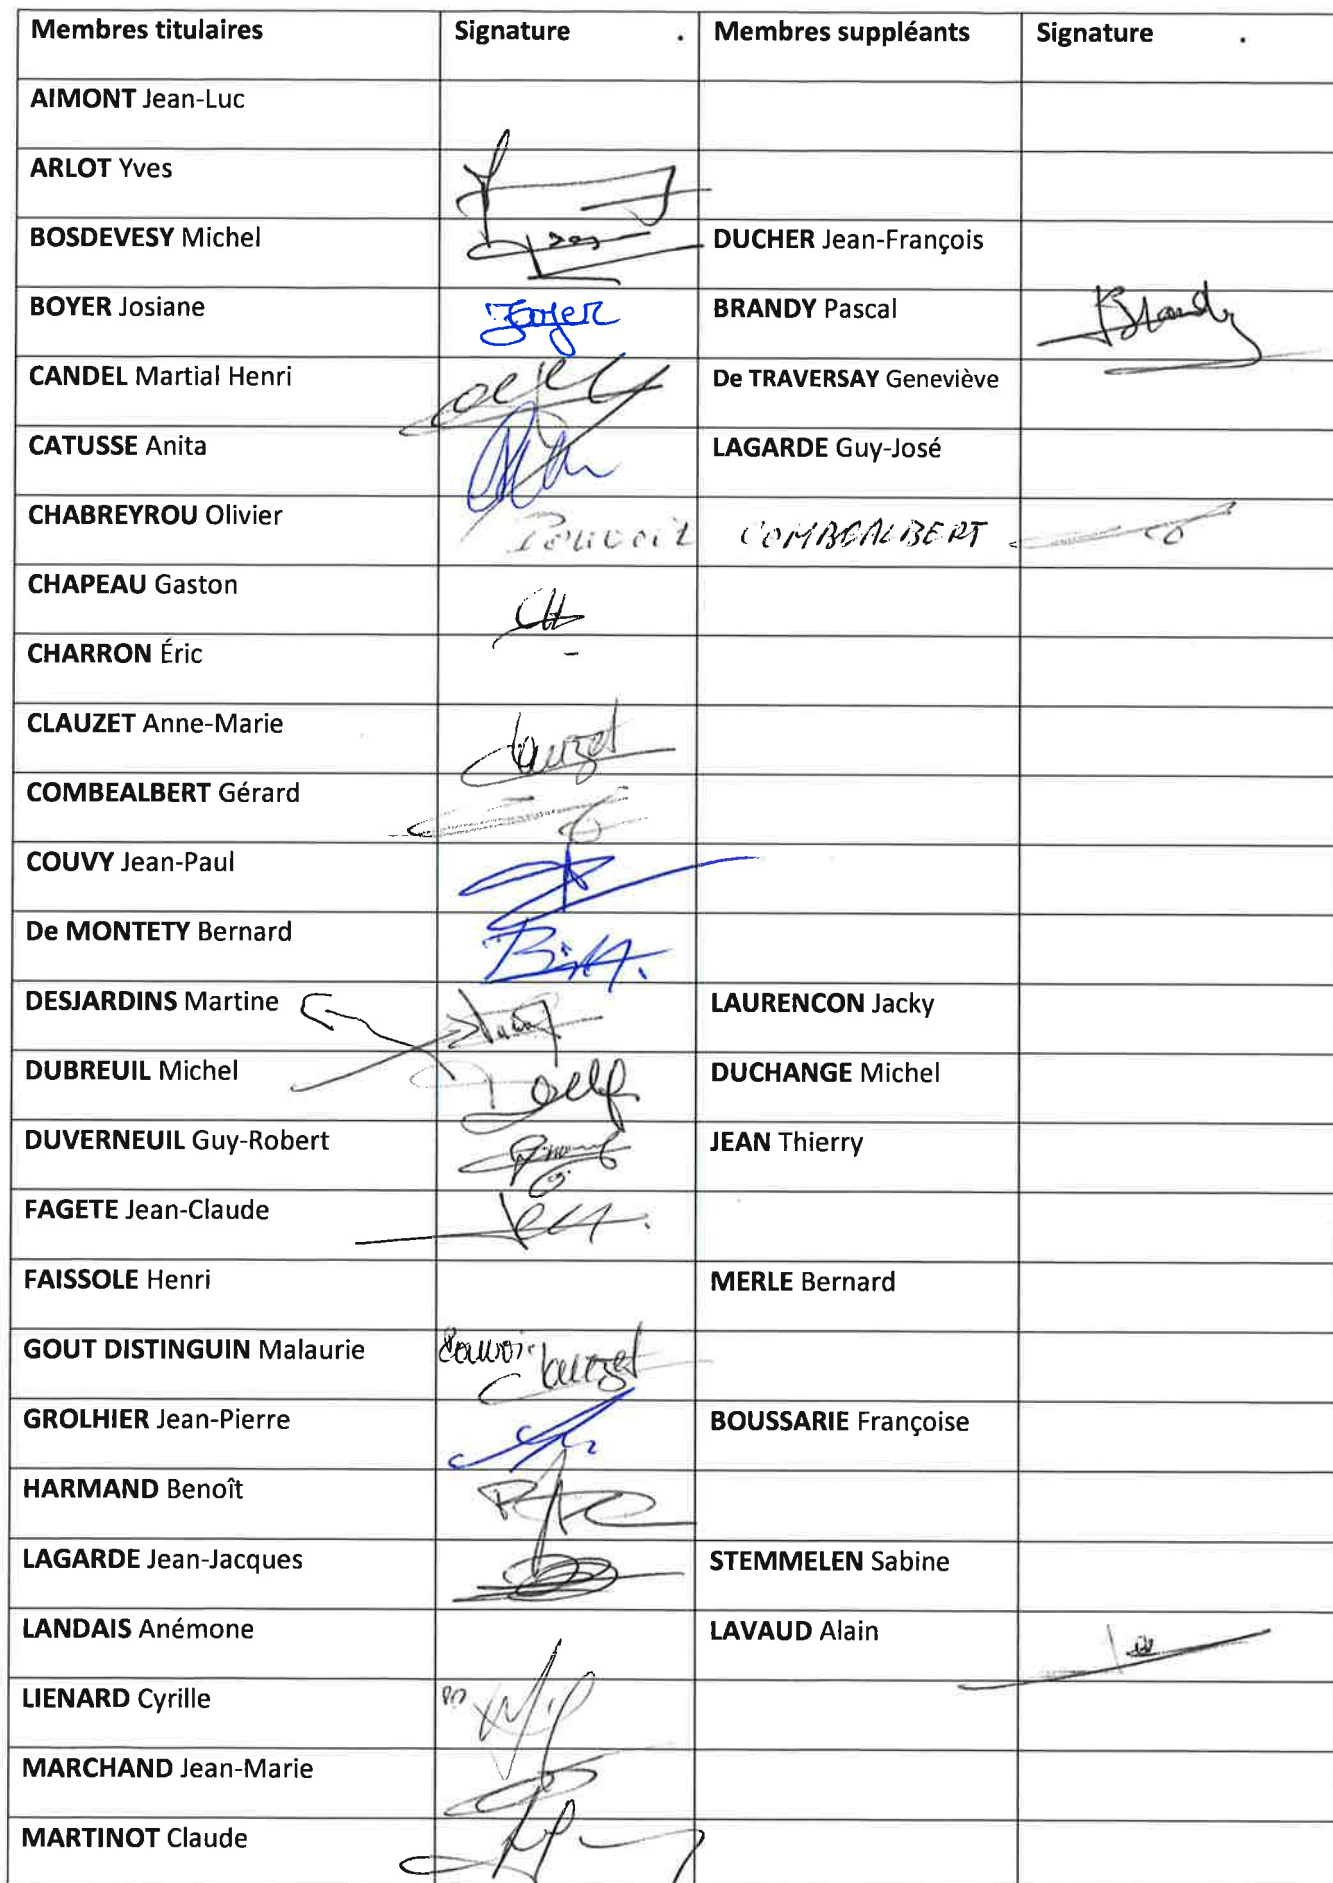 Membres titulaires Signature . Membres suppléants Signature .
AIMONT Jean-Luc
ARLOT Yves
BOSDEVESY Michel DUCHER Jean-François
BOYER Josiane Boyer BRANDY Pascal Brandy
CANDEL Martial Henri De TRAVERSAY Geneviève
CATUSSE Anita LAGARDE Guy-José
CHABREYROU Olivier Pouvoir COMBEALBERT
CHAPEAU Gaston
CHARRON Éric
CLAUZET Anne-Marie Clauzet
COMBEALBERT Gérard
COUVY Jean-Paul
De MONTETY Bernard
DESJARDINS Martine LAURENCON Jacky
DUBREUIL Michel DUCHANGE Michel
DUVERNEUIL Guy-Robert JEAN Thierry
FAGETE Jean-Claude
FAISSOLE Henri MERLE Bernard
GOUT DISTINGUIN Malaurie Pouvoir Clauzet
GROLHIER Jean-Pierre BOUSSARIE Françoise
HARMAND Benoît
LAGARDE Jean-Jacques STEMMELEN Sabine
LANDAIS Anémone LAVAUD Alain
LIENARD Cyrille
MARCHAND Jean-Marie
MARTINOT Claude